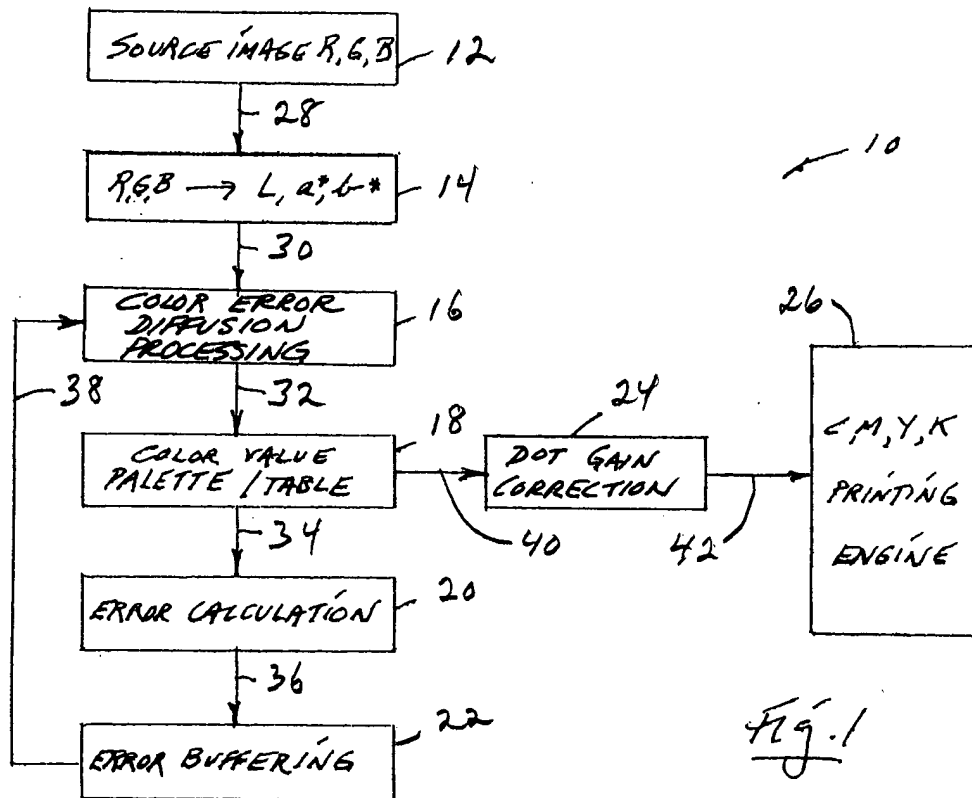 SOURCE IMAGE R, G, B
12
28
10
R,G,B → L, a*, b*
14
30
COLOR ERROR
DIFFUSION
PROCESSING
16
26
38
32
24
18
COLOR VALUE
PALETTE / TABLE
DOT GAIN
CORRECTION
C, M, Y, K
PRINTING
ENGINE
34
40
42
ERROR CALCULATION
20
36
22
ERROR BUFFERING
Fig. 1